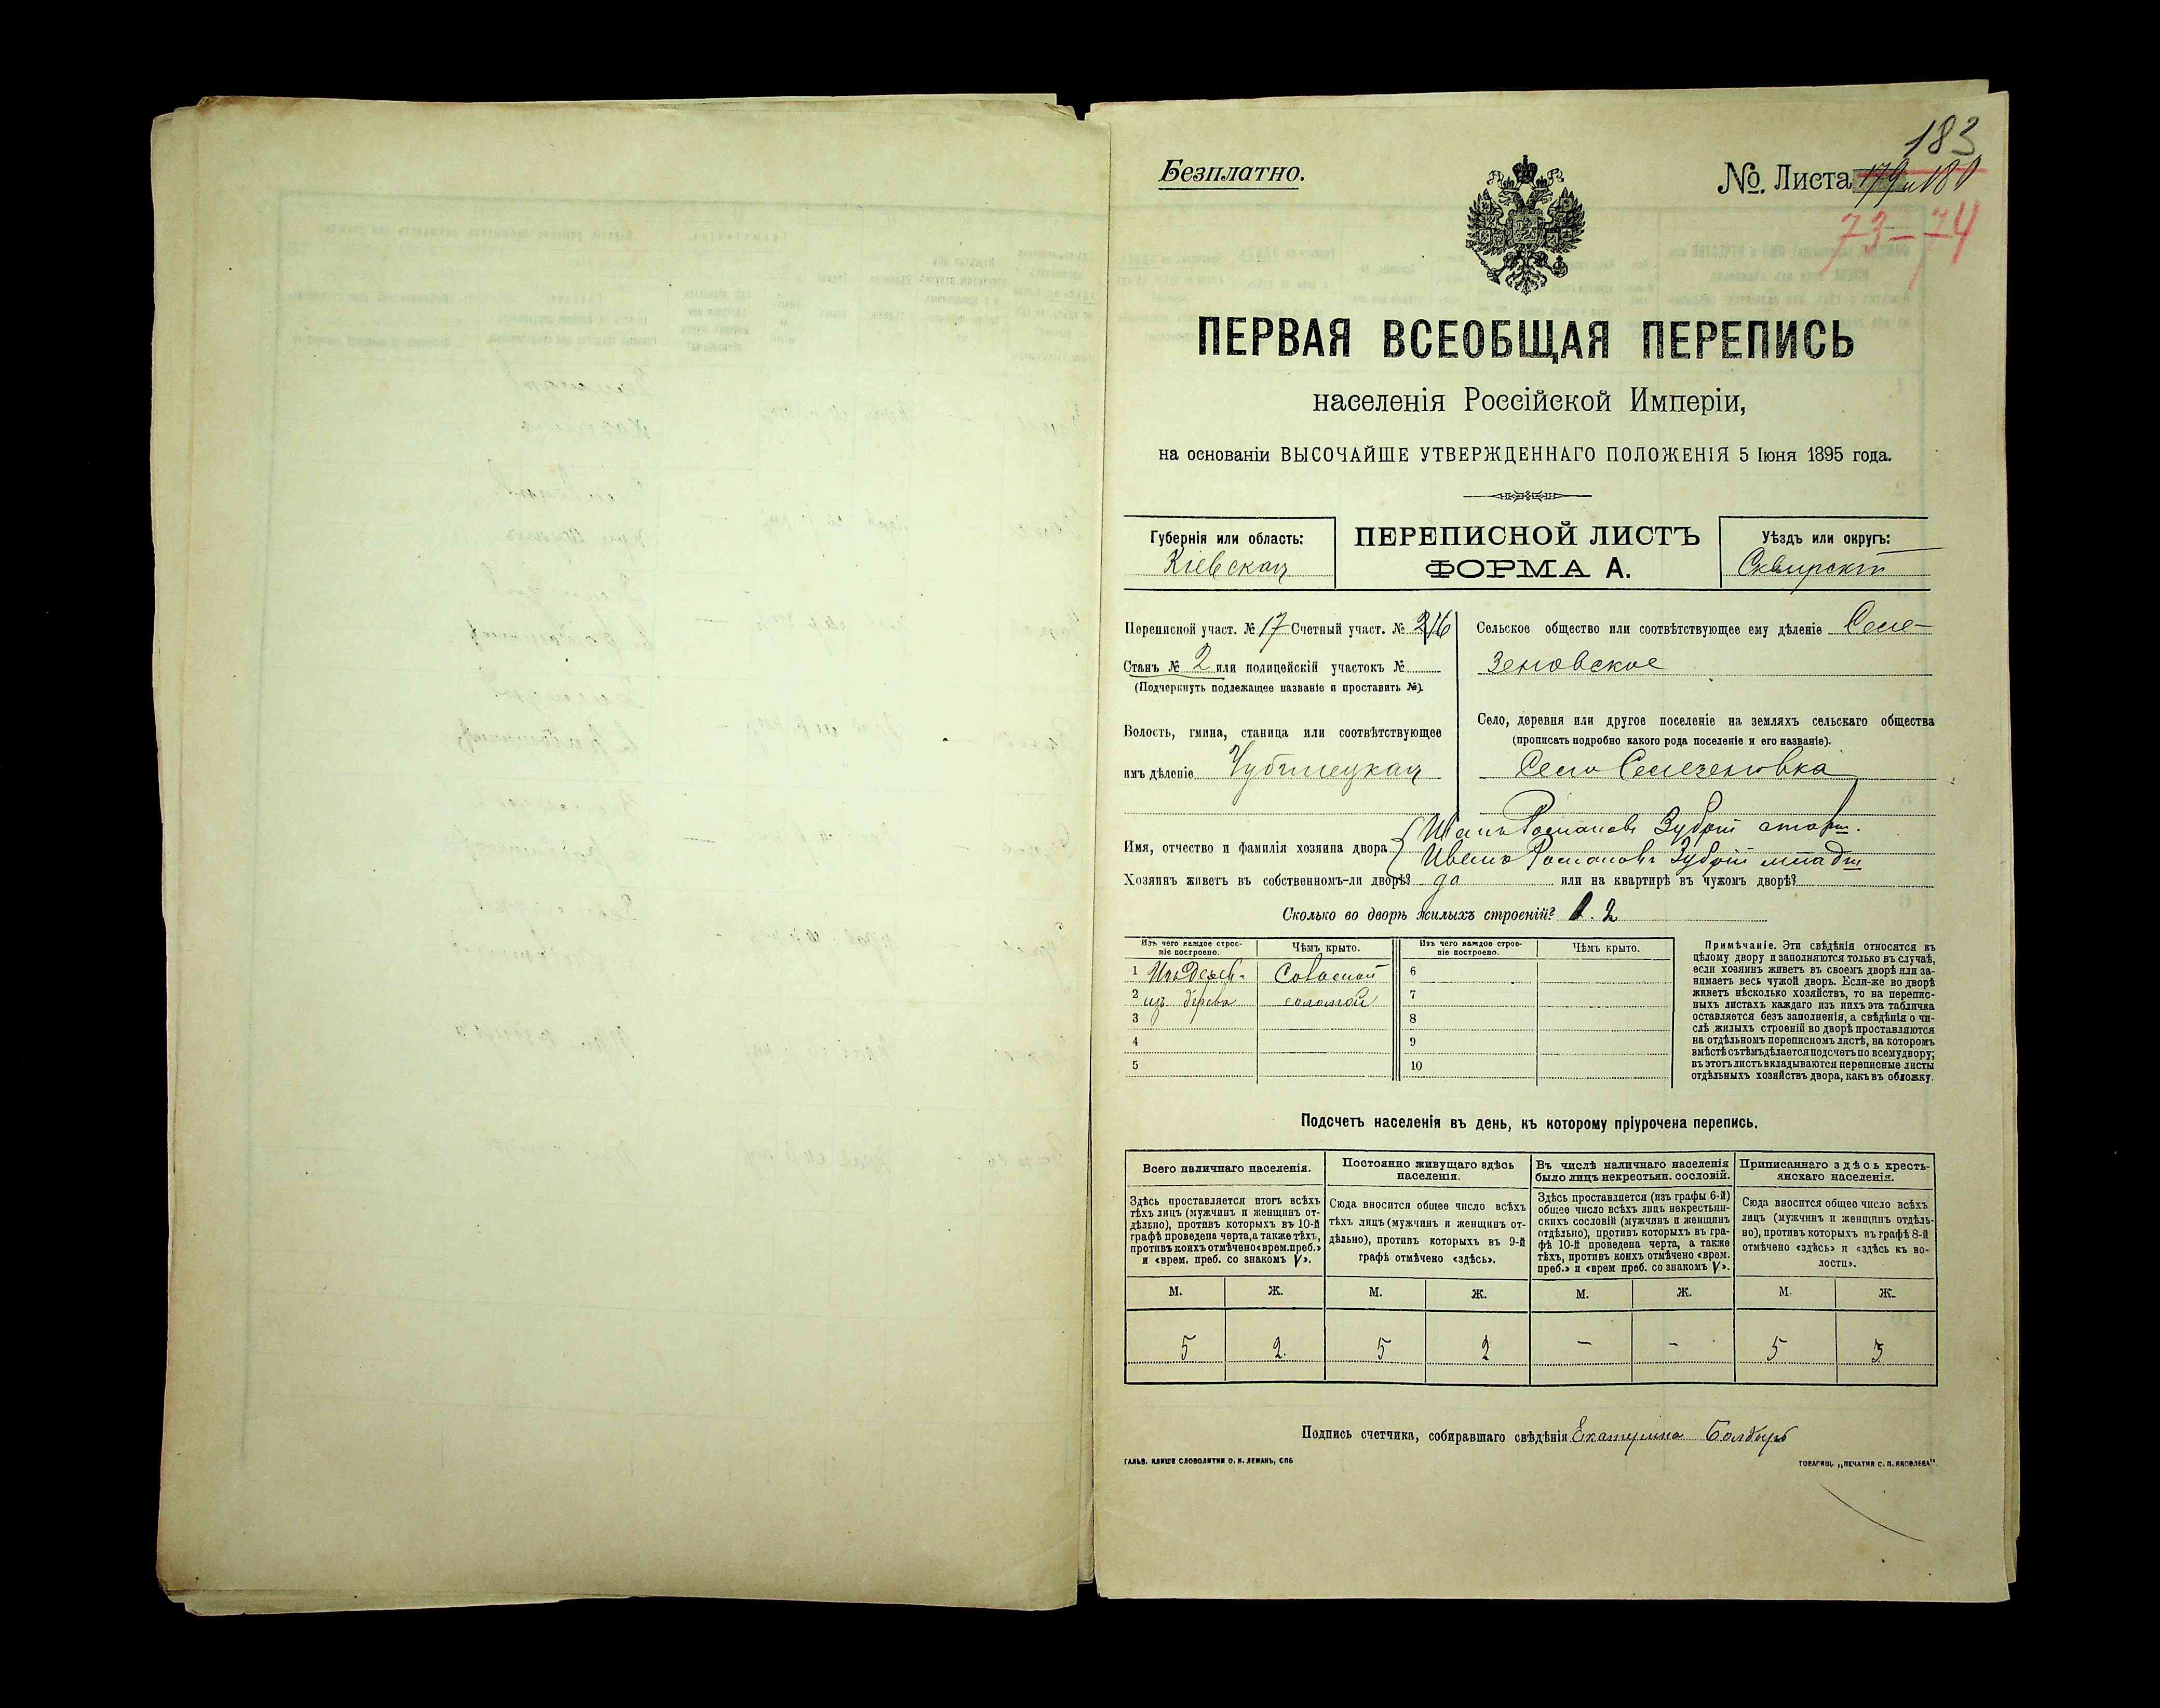 183
Безплатно.
№. Листа 179 и 180
73-74
ПЕРВАЯ ВСЕОБЩАЯ ПЕРЕПИСЬ
населенія Россійской Имперіи,
на основаніи ВЫСОЧАЙШЕ УТВЕРЖДЕННАГО ПОЛОЖЕНІЯ 5 Іюня 1895 года.
Губернія или область:
Кіевская
ПЕРЕПИСНОЙ ЛИСТЪ
ФОРМА А.
Уѣздъ или округъ:
Сквирскій
Переписной участ. № 17 Счетный участ. №
Станъ № 2 или полицейскій участокъ №
(Подчеркнуть подлежащее названіе и проставить №).
Волость, гмина, станица или соотвѣтствующее
имъ дѣленіе Чубинецкая
Сельское общество или соотвѣтствующее ему дѣленіе Селе-
зеновское
Село, деревня или другое поселеніе на земляхъ сельскаго общества
(прописать подробно какого рода поселеніе и его названіе).
Село Селезеновка
Иванъ Романовъ Зубрій старш.
Имя, отчество и фамилія хозяина двора
Иванъ Романовъ Зубрій младш
Хозяинъ живетъ въ собственномъ-ли дворѣ? да или на квартирѣ въ чужомъ дворѣ?
Сколько во дворѣ жилыхъ строеній? 2
Изъ чего каждое строе-
ніе построено.
Чѣмъ крыто.
Изъ чего каждое строе-
ніе построено.
Чѣмъ крыто.
1 Изъ Дерев. Соломой 6
2 изъ дерева соломой 7
3 8
4 9
5 10
Примѣчаніе. Эти свѣдѣнія относятся къ
цѣлому двору и заполняются только въ случаѣ,
если хозяинъ живетъ въ своемъ дворѣ или за-
нимаетъ весь чужой дворъ. Если-же во дворѣ
живетъ нѣсколько хозяйствъ, то на перепис-
ныхъ листахъ каждаго изъ нихъ эта табличка
оставляется безъ заполненія, а свѣдѣнія о чи-
слѣ жилыхъ строеній во дворѣ проставляются
на отдѣльномъ переписномъ листѣ, на которомъ
вмѣстѣ съ тѣмъ дѣлается подсчетъ по всему двору;
въ этотъ листъ вкладываются переписные листы
отдѣльныхъ хозяйствъ двора, какъ въ обложку.
Подсчетъ населенія въ день, къ которому пріурочена перепись.
Всего наличнаго населенія.
Здѣсь проставляется итогъ всѣхъ
тѣхъ лицъ (мужчинъ и женщинъ от-
дѣльно), противъ которыхъ въ 10-й
графѣ проведена черта, а также тѣхъ,
противъ коихъ отмѣчено «врем. преб.»
и «врем. преб. со знакомъ V».
Постоянно живущаго здѣсь
населенія.
Сюда вносится общее число всѣхъ
тѣхъ лицъ (мужчинъ и женщинъ от-
дѣльно), противъ которыхъ въ 9-й
графѣ отмѣчено «здѣсь».
Въ числѣ наличнаго населенія
было лицъ некрестьян. сословій.
Здѣсь проставляется (изъ графы 6-й)
общее число всѣхъ лицъ некрестьян-
скихъ сословій (мужчинъ и женщинъ
отдѣльно), противъ которыхъ въ гра-
фѣ 10-й проведена черта, а также
тѣхъ, противъ коихъ отмѣчено «врем.
преб.» и «врем преб. со знакомъ V».
Приписаннаго здѣсь кресть-
янскаго населенія.
Сюда вносится общее число всѣхъ
лицъ (мужчинъ и женщинъ отдѣль-
но), противъ которыхъ въ графѣ 8-й
отмѣчено «здѣсь» и «здѣсь къ во-
лости».
М. Ж. М. Ж. М. Ж. М. Ж.
5 2. 5 2 - - 5 3
Подпись счетчика, собиравшаго свѣдѣнія Екатерина Болдырь
ГАЛЬВ. КЛИШЕ СЛОВОЛИТНИ О. И. ЛЕМАНЪ, СПБ
ТОВАРИЩ. „ПЕЧАТНЯ С. П. ЯКОВЛЕВА".